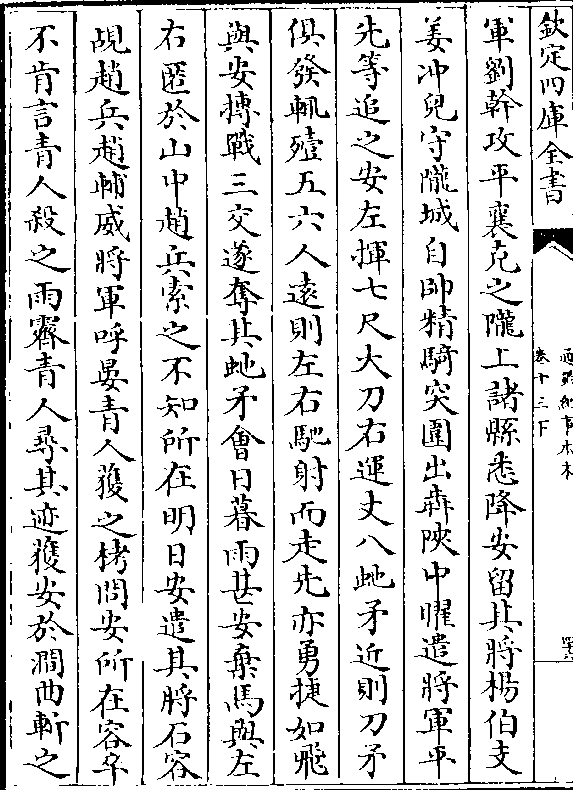 欽定四庫全書
通鑑紀事本末
卷十三下
軍劉幹攻平襄克之隴上諸縣悉降安留其將楊伯支
姜冲兒守隴城自帥精騎突圍出奔陝中曜遣將軍平
先等追之安左揮七尺大刀右運丈八虵矛近則刀矛
俱發輒殪五六人遠則左右馳射而走先亦勇捷如飛
與安搏戰三交遂奪其虵矛會日暮雨甚安棄馬與左
右匿於山中趙兵索之不知所在明日安遣其將石容
覘趙兵趙輔威將軍呼晏青人獲之拷問安所在容卒
不肯言青人殺之雨霽青人尋其迹獲安於澗曲斬之